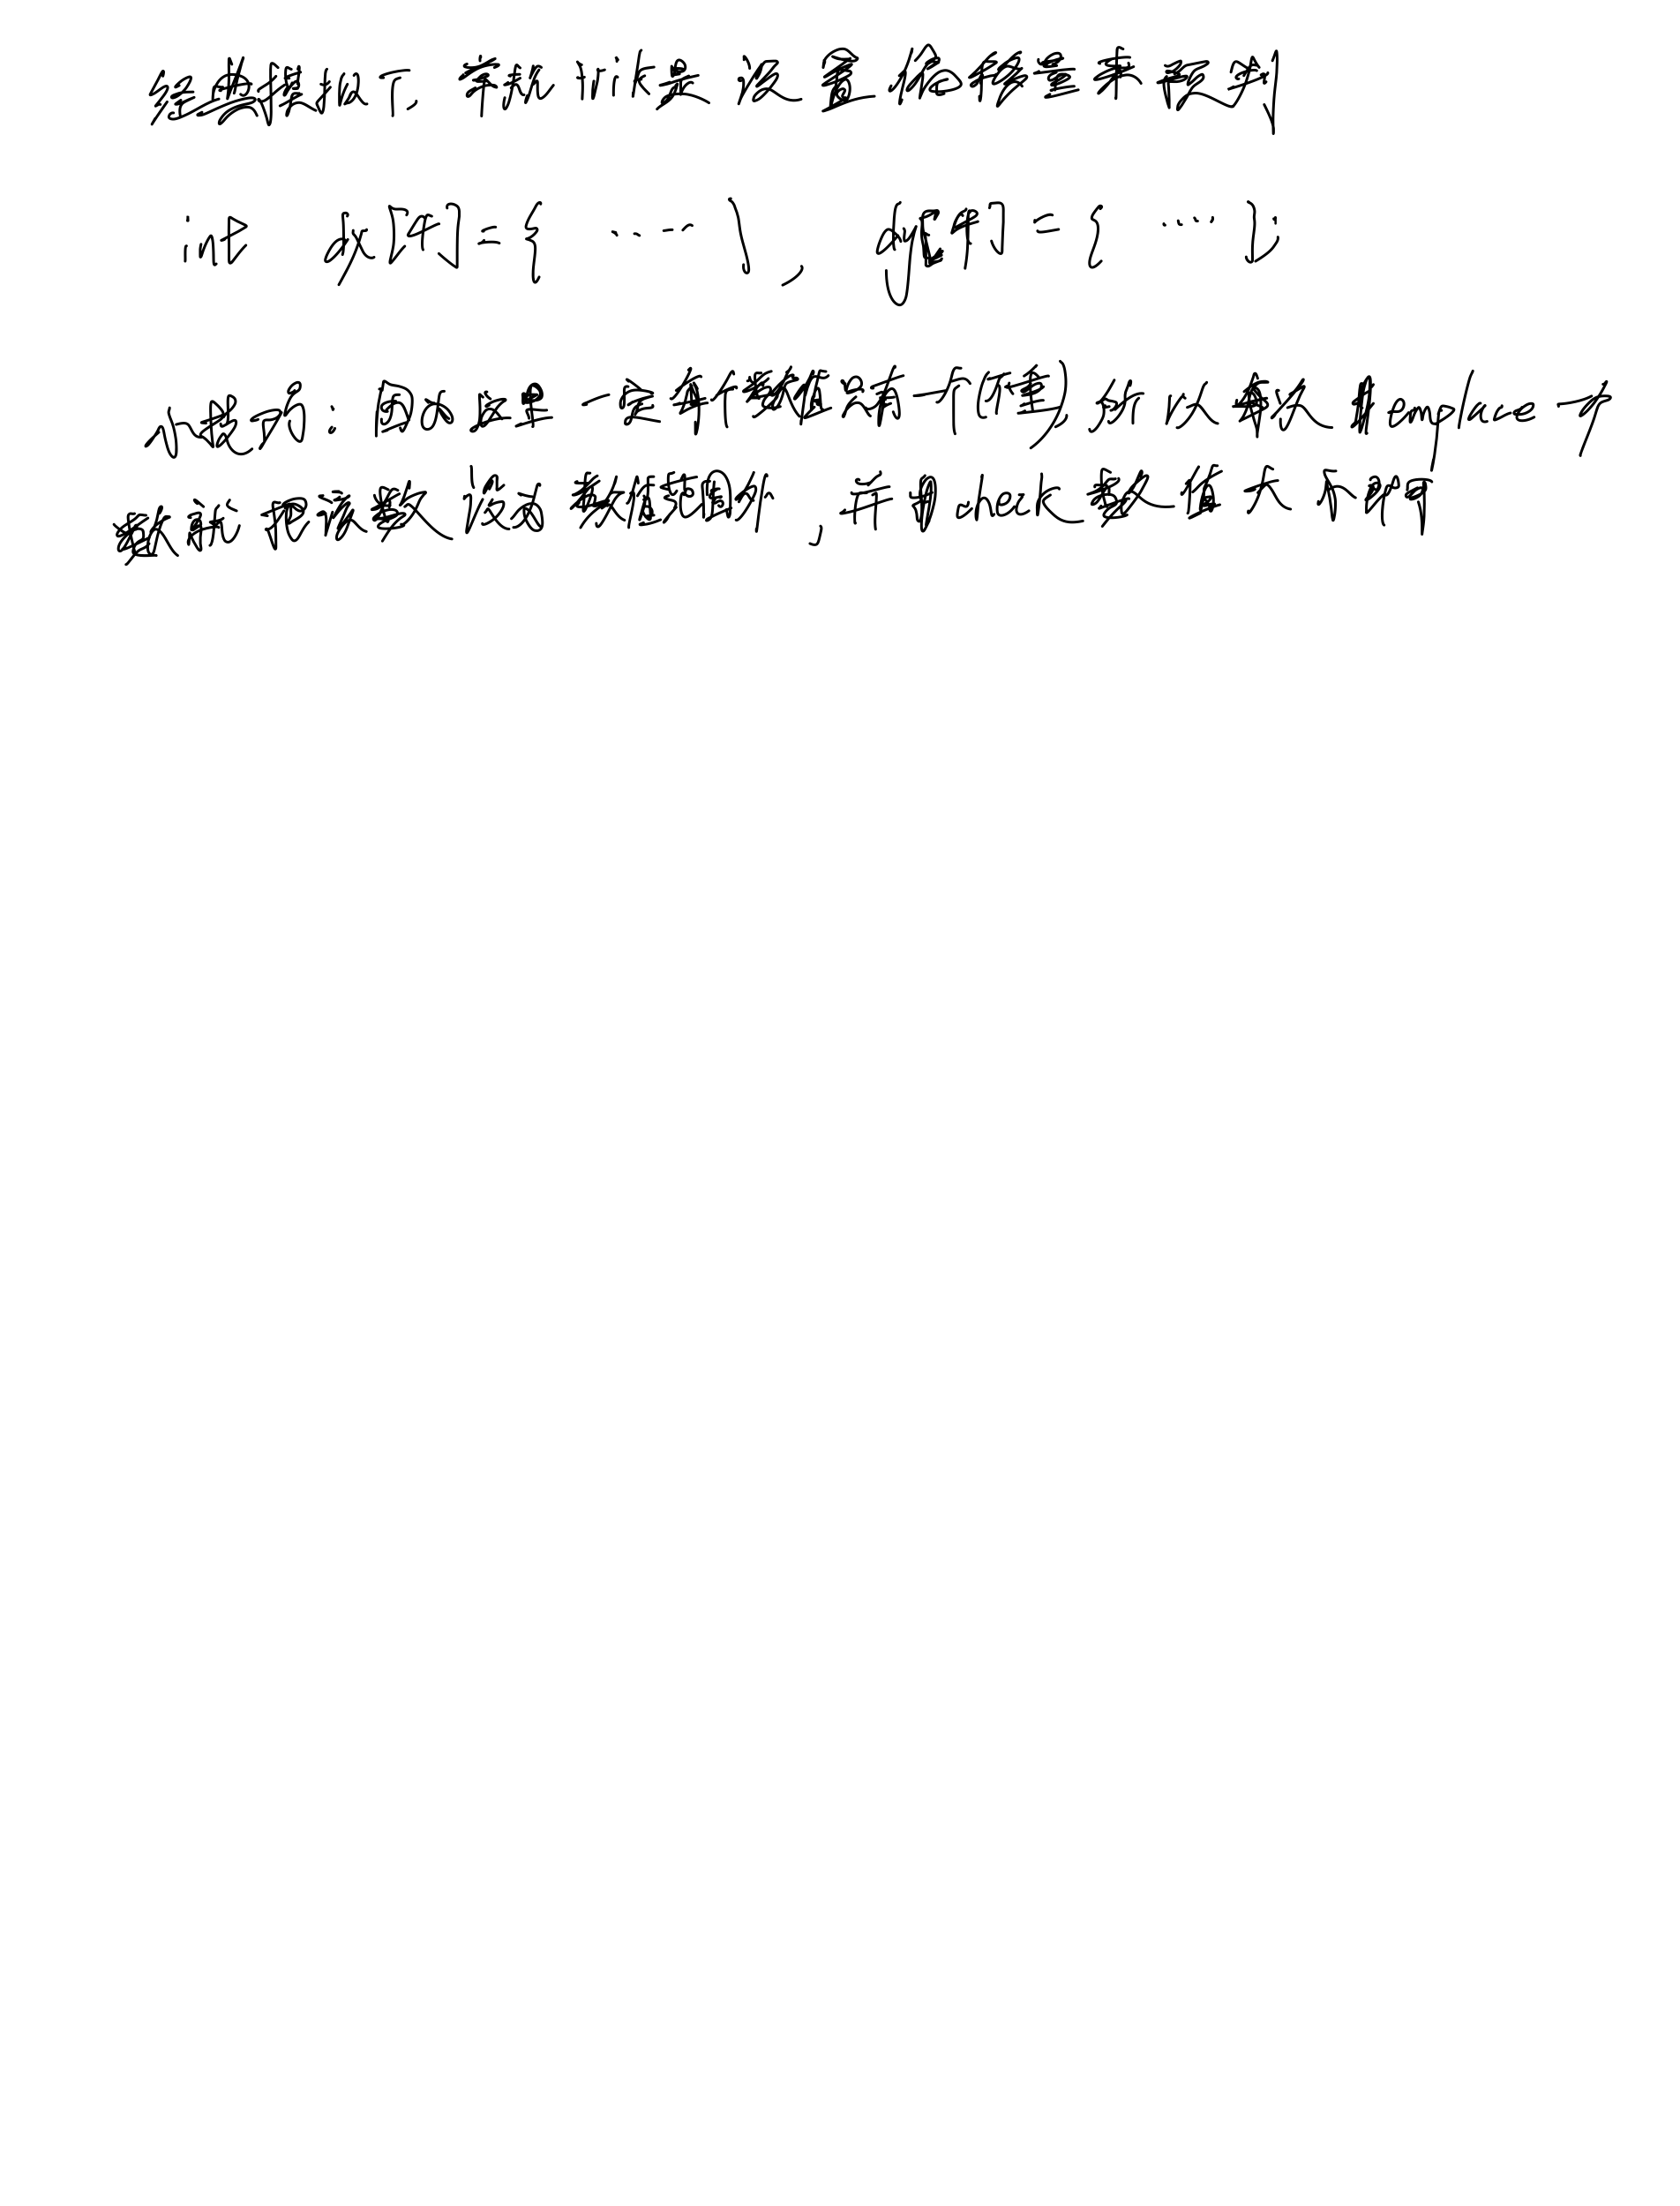 经典模板下, 常, trick是设置偏移量来更判
int dx[4]={ ···· }, dy[4]={ ···· };
小提示: 因为题里一定每个数值只有一个(不重)所以每次用emplace
就能把该数设为数值范围外, 并用check数值大小即可